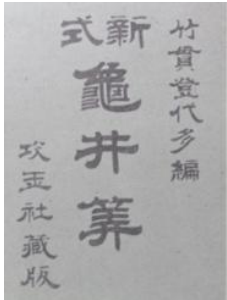 竹貫登代多編
新式
龜井算
攻玉社藏版